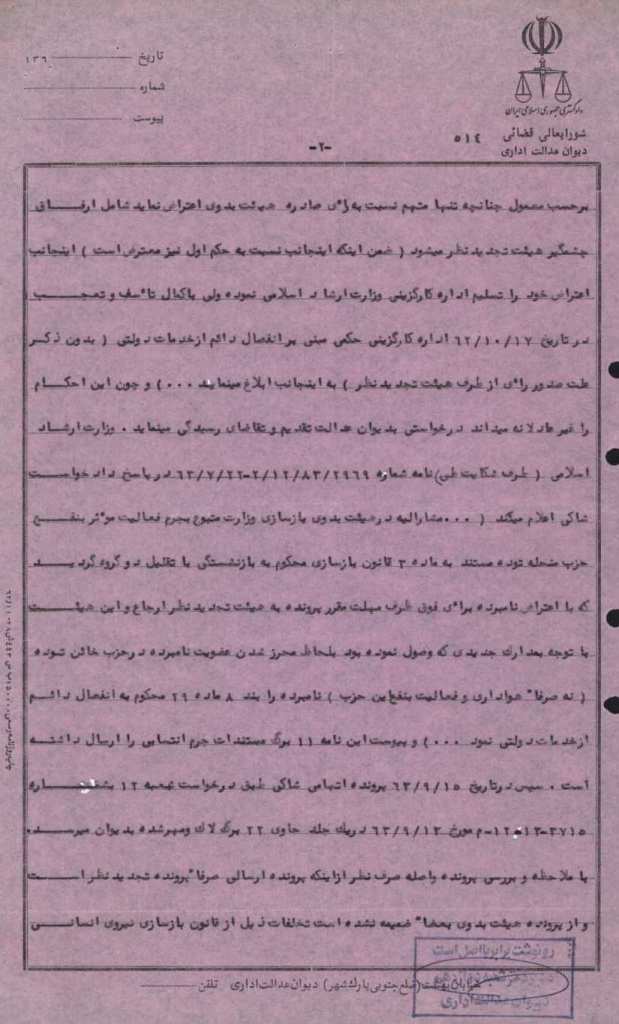 دادگستری جمهوری اسلامی ایران
شورایعالی قضائی
دیوان عدالت اداری
تاریخ ۱۳۶
شماره
پیوست
۵۱٤
-۲-
برحسب معمول چنانچه تنها متهم نسبت به رای صادره هیئت بدوی اعتراض نماید شامل ارفاقی
چشمگیر هیئت تجدید نظر میشود ( ضمن اینکه اینجانب نسبت به حکم اول نیز معترض است ) اینجانب
اعتراض خود را تسلیم اداره کارگزینی وزارت ارشاد اسلامی نموده ولی باکمال تاسف و تعجب
در تاریخ ۶۲/۱۰/۱۷ اداره کارگزینی حکمی مبنی بر انفصال دائم از خدمات دولتی ( بدون ذکر
علت صدور رای از طرف هیئت تجدید نظر ) به اینجانب ابلاغ مینماید ۰۰۰ ) و چون این احکام
را غیر عادلانه میداند درخواستی بدیوان عدالت تقدیم و تقاضای رسیدگی مینماید ۰ وزارت ارشاد
اسلامی ( طرف شکایت طی) نامه شماره ۲/۱۲/۸۳/۲۹۶۹-۶۳/۷/۲۲ در پاسخ دادخواست
شاکی اعلام میکند ( ۰۰۰ مشارالیه در هیئت بدوی بازسازی وزارت متبوع بجرم فعالیت موثر بنفع
حزب منحله توده مستند به ماده ۳ قانون بازسازی محکوم به بازنشستگی با تقلیل دو گروه گردید
که با اعتراض نامبرده برای فوق ظرف مهلت مقرر پرونده به هیئت تجدید نظر ارجاع و این هیئت
با توجه بمدارک جدیدی که وصول نموده بود بلحاظ محرز شدن عضویت نامبرده در حزب خائن توده
( نه صرفا" هواداری و فعالیت بنفع این حزب ) نامبرده را بند ۸ ماده ۲۹ محکوم به انفصال دائم
از خدمات دولتی نمود ۰۰۰ ) و پیوست این نامه ۱۱ برگ مستندات جرم انتسابی را ارسال داشته
است ۰ سپس در تاریخ ۶۳/۹/۱۵ پرونده اتهامی شاکی طبق درخواست شعبه ۱۲ بشماره
۳۷۱۵-۱۳-۱۲-م مورخ ۶۳/۹/۱۳ در یک جلد حاوی ۲۲ برگ لاک و مهر شده بدیوان میرسد ۰
با ملاحظه و بررسی پرونده واصله صرف نظر از اینکه پرونده ارسالی صرفا" پرونده تجدید نظر است
و از پرونده هیئت بدوی بعضا" ضمیمه نشده است تخلفات ذیل از قانون بازسازی نیروی انسانی
رونوشت برابر با اصل است
دیوان عدالت اداری
(ضلع جنوبی پارک شهر) دیوان عدالت اداری تلفن